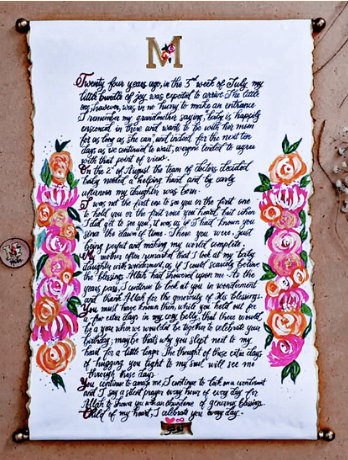 M
Twenty four years ago, in the 3rd week of July, my
little bundle of joy, was expected to arrive. The little
one, however, was in no hurry to make an entrance.
I remember my grandmother saying, baby is happily
ensconced in there and wants to be with her mom
for as long as she can, and indeed for the next ten
days as we continued to wait, everyone tended to agree
with that point of view.
On the 2nd of August the team of doctors decided
baby needed a helping hand and by early
afternoon my daughter was born.
I was not the first one to see you or the first one
to hold you or the first voice you heard, but when
I did get to see you, it was as if I had known you
from the dawn of time. There you were just
being perfect and making my world complete.
My mother often remarked that I look at my baby
daughter with wonderment, as if I could scarcely believe
the blessing Allah had showered upon me. As the
years pass, I continue to look at you in wonderment
and thank Allah for the generosity of His blessings.
You must have known then while you held out for
a few extra days in my cosy belly, that there would
be a year when we wouldn't be together to celebrate your
birthday; maybe that's why you slept next to my
heart for a little longer. The thought of these extra days
of hugging you tight to my soul will see me
through these days.
You continue to amaze me, I continue to look on in wonderment
and I say a silent prayer every hour of every day for
Allah to shower you with an abundance of generous blessings.
Child of my heart, I celebrate you every day.